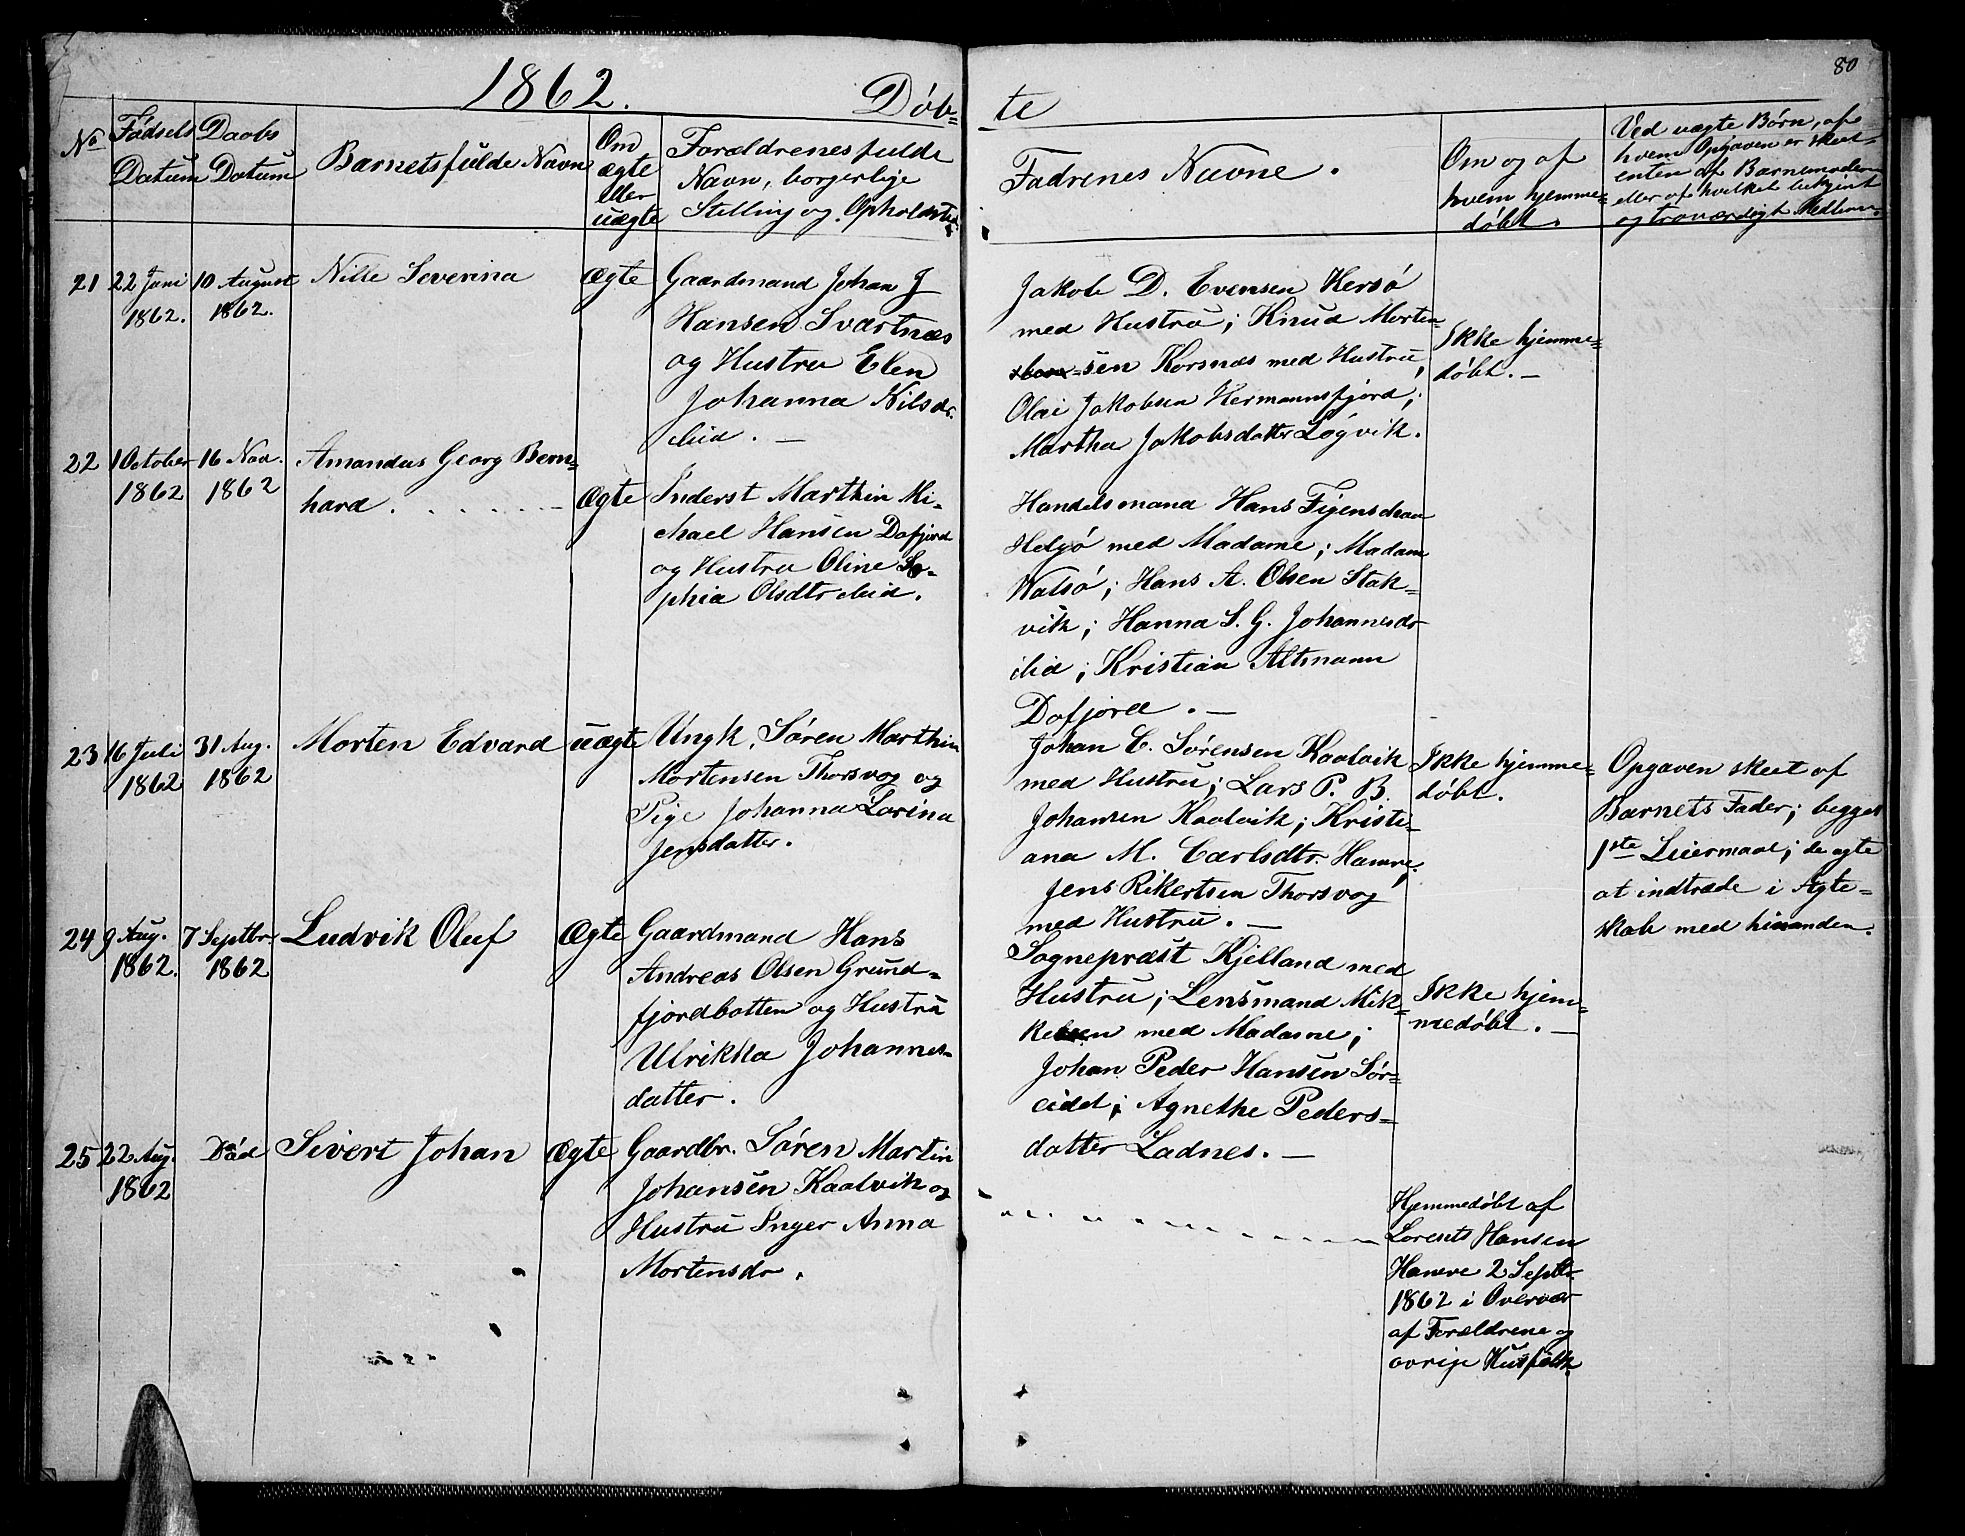 80
1862.
Döb=
=te
No
Födsels Datum
Daabs Datum
Barnets fulde Navn
Om ægte eller uægte
Forældrenes fulde Navn, borgerlige Stilling og Opholdsted
Fadrenes Navne.
Om og af hvem hjemme= döbt.
Ved uægte Börn, af
hvem Opgaven er skeet -
enten af Barnemoderen
eller af hvilket bekjent
og troværdigt Mellem
21
22 Juni
1862.
10 August
1862.
Nille Severina
Ægte
Gaardmand Johan J
Hansen Svartnæs
og Hustru Elen
Johanna Nilsdr.
ibid. —
Jakob D. Evensen Hersö
med Hustru; Knud Morten
sen Korsnæs med Hustru,
Olai Jakobsen Hermannsfjord;
Martha Jakobsdatter Lögvik.
Ikke hjemme=
döbt. —
22
1 October
1862
16 Nov.
1862
Amandus Georg Bern=
hard.
Ægte
Inderst Marthin Mi-
chael Hansen Dafjord
og Hustru Oline So-
phia Olsdtr ibid.
Handelsmand Hans Figenschau
Helgö med Madame; Madam
Watsö; Hans A. Olsen Stak=
vik; Hanna S. G. Johannesdr
ibid; Kristian Altmann
Dafjord. —
23
16 Juli
1862
31 Aug.
1862
Morten Edvard
uægte
Ungk. Sören Marthin
Mortensen Thorsvog og
Pige Johanna Lorina
Jensdatter.
Johan C. Sörensen Kaalvik
med Hustru; Lars P. B.
Johansen Kaalvik; Kristi-
ana M. Carlsdtr. Hamre;
Jens Rikertsen Thorsvog
med Hustru. —
Ikke hjemme=
döbt.
Opgaven skeet af
Barnets Fader; begges
1ste Leiermaal; de agte
at indtræde i Ægte=
skab med hinanden.
24
9 Aug.
1862.
7 Septbr.
1862
Ludvik Oluf
Ægte
Gaardmand Hans
Andreas Olsen Grund=
fjordbotten og Hustru
Ulrikka Johannes=
datter.
Sognepræst Kjelland med
Hustru; Lensmand Mik=
kelsen med Madame;
Johan Peder Hansen Sör=
eidet; Agnethe Peders=
datter Ladnes. —
Ikke hjem=
medöbt. —
25
22 Aug.
1862
Död
Sivert Johan
Ægte
Gaardbr. Sören Martin
Johansen Kaalvik og
Hustru Inger Anna
Mortensdr.
Hjemmedöbt af
Lorents Hansen
Hamre 2 Septbr.
1862 i Overvær
af Forældrene og
övrige Husfolk.